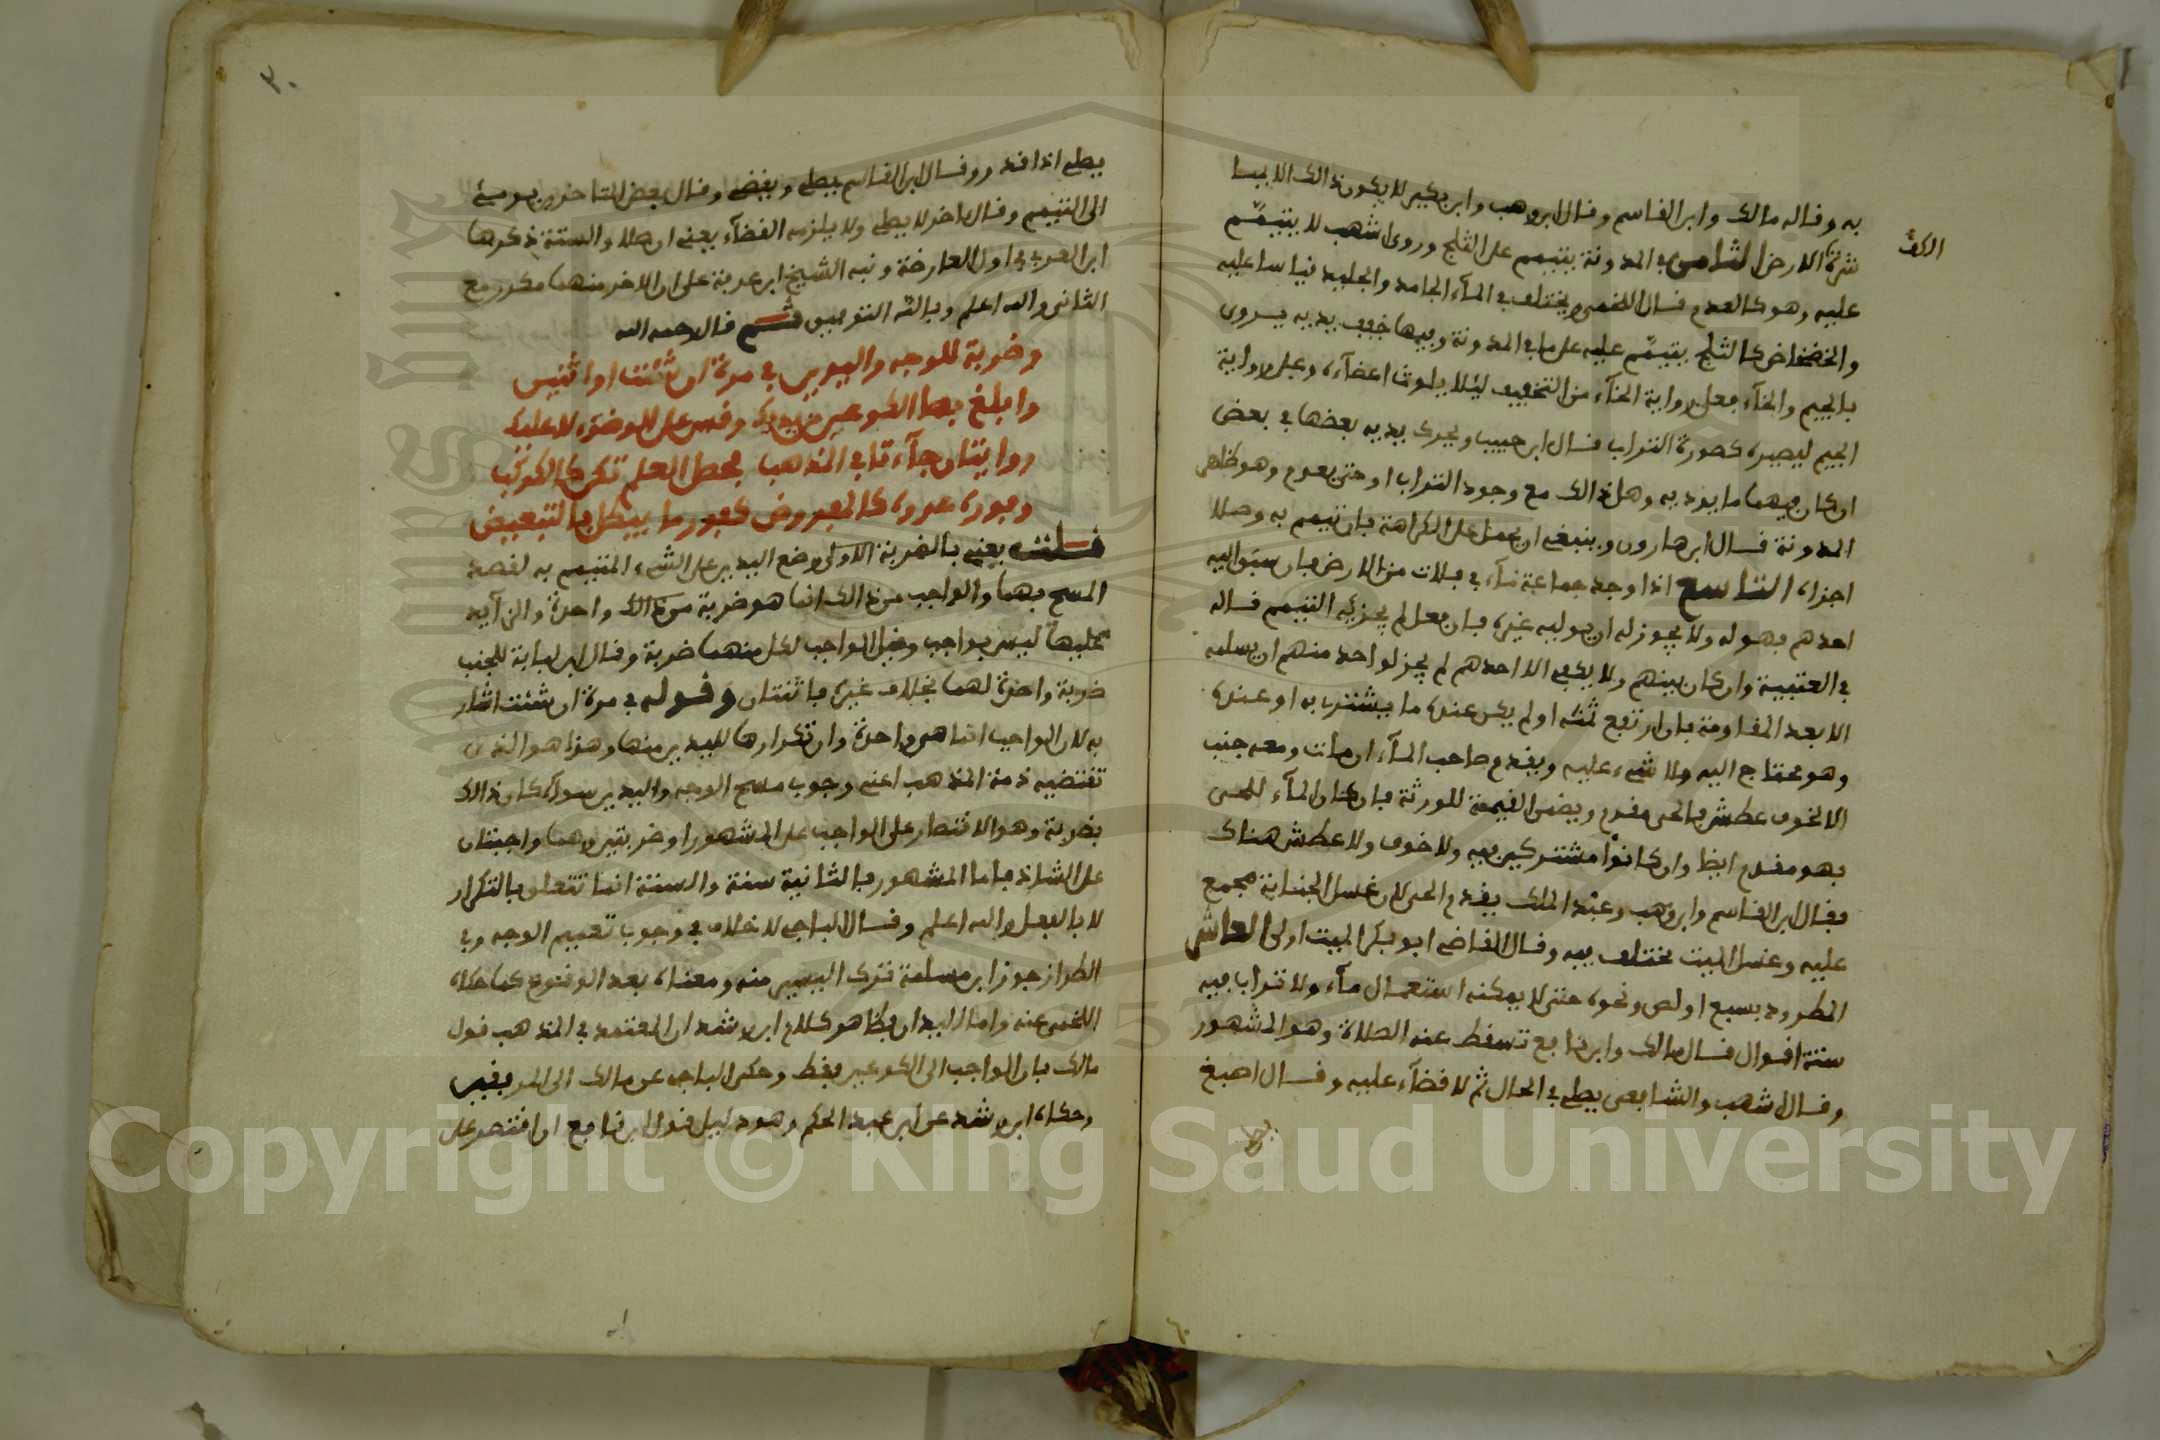 به وقاله مالك وابن القاسم وقال ابن وهب وابن بكير لا يكون ذالك الا بمسا
الكف
شرة الارض الثامن في المدونة يتيمم على الثلج وروى اشهب لا يتيمّم
عليه وهو كالعدم قال اللخمي ويختلف في المآء الجامد والجليد قياسا عليه
والخضخاض كالثلج يتيمّم عليه على ما في المدونة وفيها خفف يديه يروى
بالجيم والخآء فعلى رواية الخآء من التخفيف ليلا يلوث اعضآءه وعلى رواية
الجيم ليصيره كصورة التراب قال ابن حبيب ويحرك يديه بعضها في بعض
ان كان فيهما ما يوديه وهل ذالك مع وجود التراب او حتى يعدم وهو ظاهر
المدونة قال ابن هارون وينبغي ان يحمل على الكراهة فان تيمم به وصلا
اجزاه التاسع اذا وجد جماعة مآء في فلات من الارض فان سبق اليه
احدهم فهو له ولا يجوز له ان يوليه غيره فان فعل لم يجزيه التيمم قاله
في العتبية وان كان بينهم ولا يكفي الا احدهم لم يجز لواحد منهم ان يسلمه
الا بعد المقاومة فان ارتفع ثمنه او لم يكن عنده ما يشتري به او عنده
وهو محتاج اليه ولا شيء عليه ويقدم صاحب المآء ان مات ومعه جنب
الا لخوف عطش فالحي مقدم ويضمن القيمة للورثة فان كان المآء للحي
فهو مقدم ايظا وان كانوا مشتركين فيه ولا خوف ولا عطش هناك
فقال ابن القاسم وابن وهب وعبد الملك يقدم الحي لان غسل الجنابة مجمع
عليه وغسل الميت مختلف فيه وقال القاضي ابو بكر الميت اولى العاشر
المطرود بسبع او لص ونحوه حتى لا يمكنه استعمال مآء ولا تراب فيه
ستة اقوال قال مالك وابن نافع تسقط عنه الصلاة وهو المشهور
وقال اشهب والشافعي يصلي في الحال ثم لا قضآء عليه وقال اصبغ
يصلي
٣٠
يصلي اذا قدر وقال ابن القاسم يصلي ويقضي وقال بعض المتاخرين يومئ
الى التيمم وقال اخر لا يصلي ولا يلزمه القضآء يعني ان صلا والستة ذكرها
ابن العربي في اول العارضة ونبه الشيخ ابن عرفة على ان الاخر منهما مكرر مع
الثاني والله اعلم وبالله التوفيق ثم قال رحمه الله
وضربة للوجه واليدين في مرة ان شئت او اثنين
وابلغ بها الكوعين من يديك وقس على الوضوء لا عليك
روايتان جآءتا في المذهب فحصل العلم تكن كالكوكب
وفوره عدوه كالمفروض كفور ما يبطل بالتبعيض
قلت يعني بالضربة الاولى وضع اليدين على الشيء المتيمم به لقصد
المسح بهما والواجب من ذالك انما هو ضربة من ذالك واحدة والزايد
عليها ليس بواجب وقيل الواجب لكل منهما ضربة وقال ابن لبابة للجنب
ضربة واحدة لهما بخلاف غيره باثنتان وقوله في مرة ان شئت اشار
به لان الواجب انما هي واحدة وان تكرارها لليدين منها وهذا هو الذي
تقتضيه ذمة المذهب اعني وجوب مسح الوجه واليدين سوآء كان ذالك
بضربة وهو الاقتصار على الواجب على المشهور او ضربتين وهما واجبتان
على الشاذ فاما المشهور فالثانية سنة والسنة انما تتعلق بالتكرار
لا بالفعل والله اعلم وقال الباجي لا خلاف في وجوب تعميم الوجه وفي
الطراز جوز ابن مسلمة ترك اليسير منه ومعناه بعد الوقوع كما حكاه
اللخمي عنه واما اليدان فظاهر كلام ابن رشد ان المعتمد في المذهب قول
مالك بان الواجب الى الكوعين فقط وحكى الباجي عن مالك الى المرفقين
وحكاه ابن رشد عن ابن عبد الحكم وهو دليل قول ابن نافع ان اقتصر على
Copyright © King Saud University